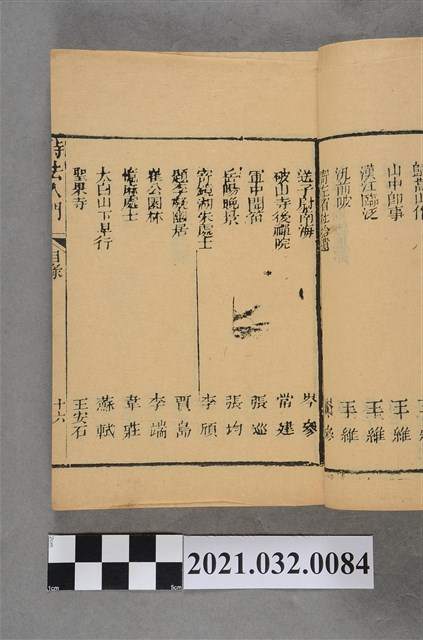 歸嵩山作
山中即事 王維
漢江臨泛 王維
汎前陂 王維
寄左省杜拾遺 岑參
送子尉南海 岑參
破山寺後禪院 常建
軍中聞笛 張巡
岳陽晚景 張均
寄鏡湖朱處士 李頎
題李凝幽居 賈島
崔公園林 李端
憶麻處士 韋莊
太白山下早行 蘇軾
聖果寺 王安石
詩法入門 目錄 十六
2021.032.0084
1cm
5cm